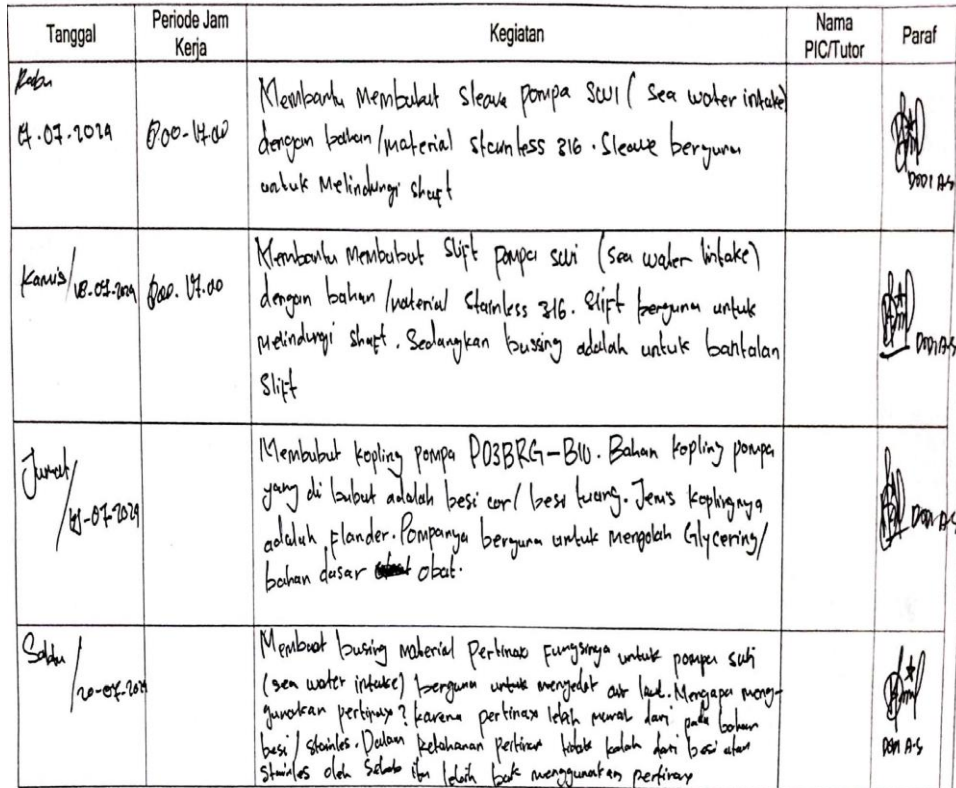 Tanggal
Periode Jam
Kerja
Kegiatan
Nama
PIC/Tutor
Paraf
Rabu
17-07-2024
8.00-17.00
Membantu Membubut Sleave pompa SWI ( sea water intake)
dengan bahan/material stainless 316. Sleave berguna
untuk Melindungi shaft
DODI A.S
Kamis/18-07-2024
8.00-17.00
Membantu Membubut Slift pompa swi (sea water lintake)
dengan bahan/material Stainless 316. Slift berguna untuk
Melindungi shaft. Sedangkan bussing adalah untuk bantalan
Slift
DODI A-S
Jumat/
19-07-2024
Membubut kopling pompa P03BRG-B10. Bahan kopling pompa
yang di bubut adalah besi cor/besi tuang. Jenis koplingnya
adalah Flander. Pompanya berguna untuk mengolah Glycering/
bahan dasar obat.
DODI A-S
Sabtu/
20-07-2024
Membuat busing material Pertinax Fungsinya untuk pompa swi
(sea water intake) berguna untuk menyedot air laut. Mengapa meng-
gunakan pertinax? karena pertinax lebih murah dari pada bahan
besi/stainles. Dalam ketahanan pertinax tidak kalah dari besi atau
Stainles oleh Sebab itu lebih baik menggunakan pertinax
DODI A-S